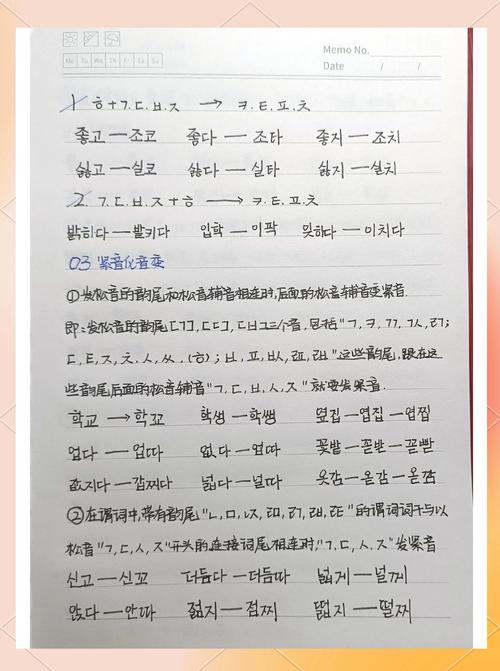 Memo No.
Mo Tu We Th Fr Sa Su
Date / /
1. ㅎ+ㄱ.ㄷ.ㅂ.ㅈ → ㅋ.ㅌ.ㅍ.ㅊ
좋고—조코 좋다—조타 좋지—조치
싫고—실코 싫다—실타 싫지—실치
2. ㄱ.ㄷ.ㅂ.ㅈ+ㅎ → ㅋ.ㅌ.ㅍ.ㅊ
밝히다—발키다 입학—이팍 잊하다—이치다
03 紧音化音变
①发松音的韵尾和松音辅音相连时,后面的松音辅音变紧音.
即:发松音的韵尾[ㄱ],[ㄷ],[ㅂ]三个音,包括"ㄱ,ㅋ,ㄲ,ㄳ,ㄺ;
ㄷ,ㅌ,ㅈ,ㅊ,ㅅ,ㅆ,(ㅎ);ㅂ,ㅍ,ㅄ,ㄿ,ㄼ"这些韵尾,跟在这
些韵尾后面的松音辅音"ㄱ,ㄷ,ㅂ,ㅅ,ㅈ"就要发紧音.
학교→학꾜 학생—학쌩 옆집—엽집—엽찝
업다—업따 없다—업따 꽃밭—꼳받—꼳빧
넓다—널따 옷감—옫감—옫깜
②在谓词中,带有韵尾"ㄴ,ㅁ,ㄵ,ㄻ,ㄺ,ㄼ,ㄾ"的谓词词干与以
松音"ㄱ,ㄷ,ㅅ,ㅈ"开头的连接词尾相连时,"ㄱ,ㄷ,ㅅ,ㅈ"发紧音
신고—신꼬 더듬다—더듬따 넓게—널께
앉다—안따 젊지—점찌 떫지—떨찌